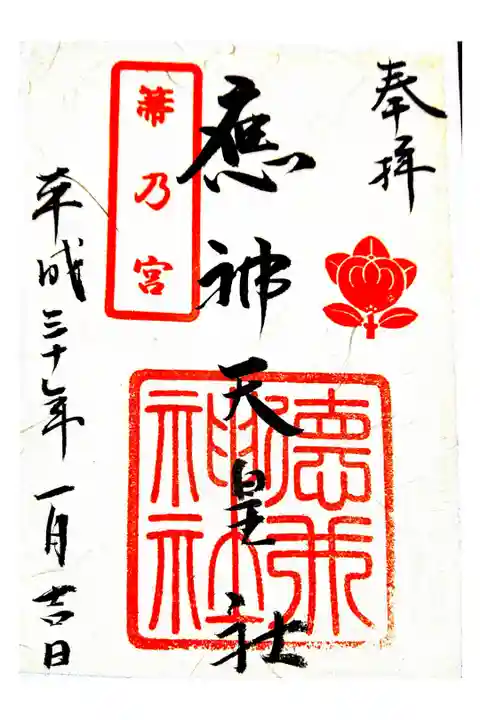 奉拝
應神天皇社
箒乃宮
德井
神社
平成三十年一月吉日